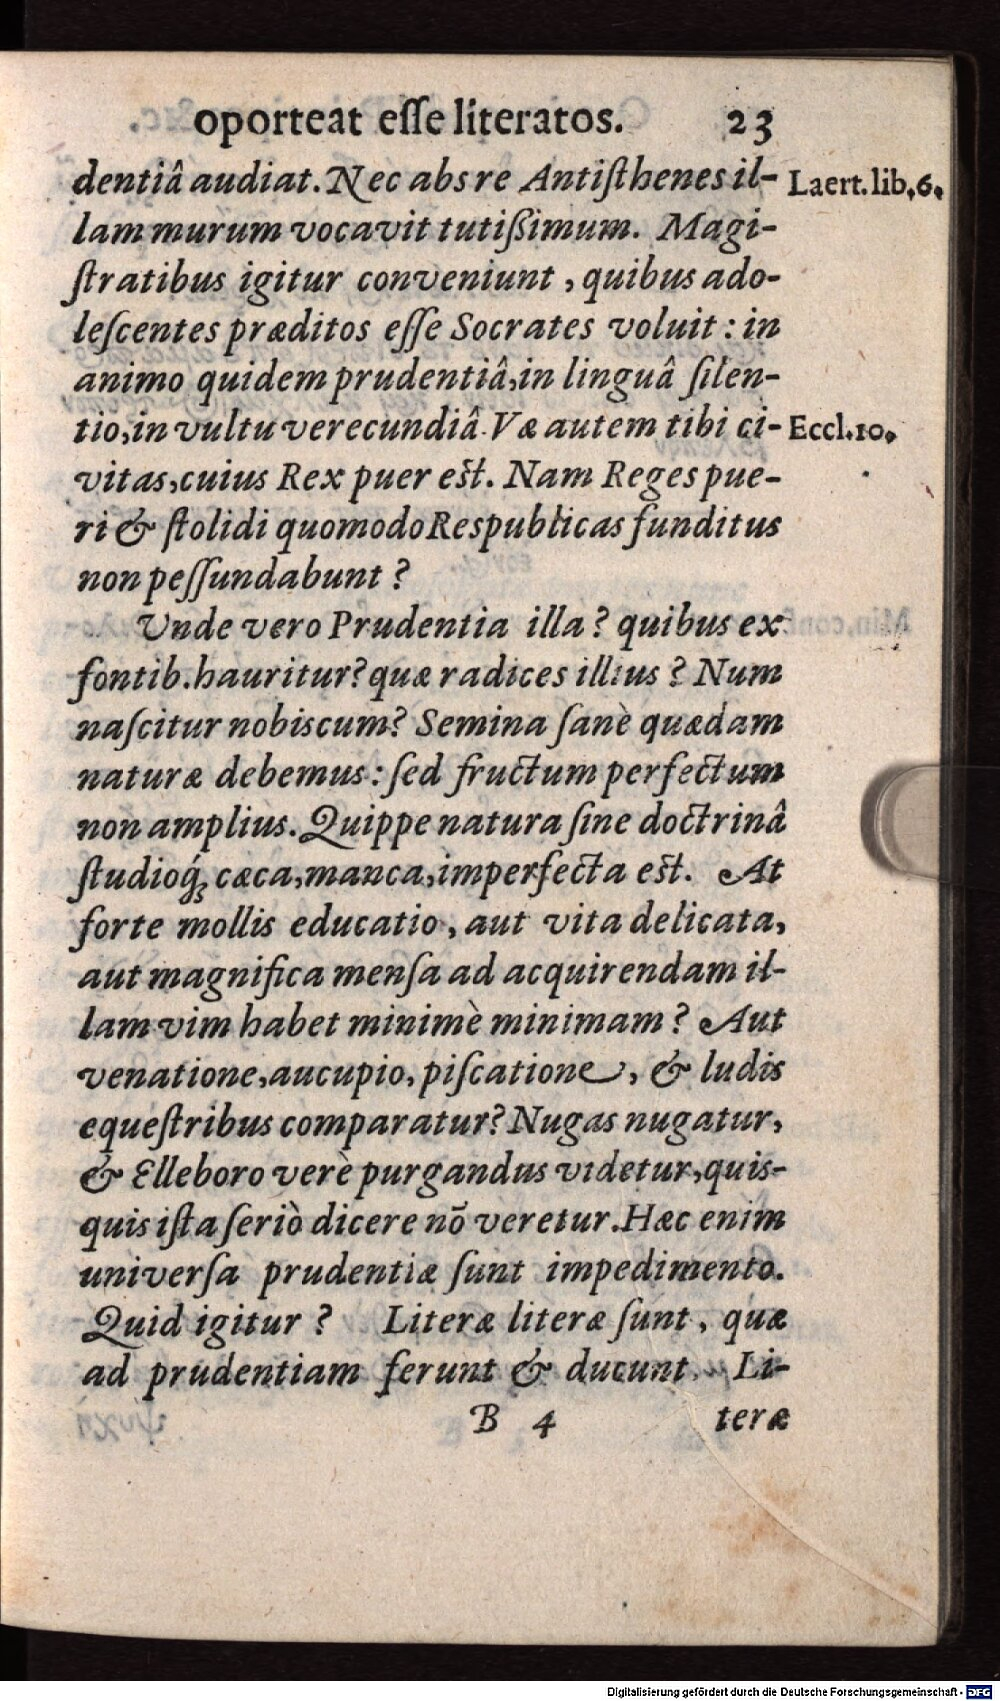 oporteat eſſe literatos. 23
dentiâ audiat. Nec abs re Antiſthenes il- Laert. lib. 6.
lam murum vocavit tutißimum. Magi-
ſtratibus igitur conveniunt, quibus ado-
leſcentes præditos eſſe Socrates voluit: in
animo quidem prudentiâ, in linguâ ſilen-
tio, in vultu verecundiâ. Væ autem tibi ci- Eccl. 10.
vitas, cuius Rex puer est. Nam Reges pue-
ri & ſtolidi quomodo Respublicas funditus
non peſſundabunt?
Unde vero Prudentia illa? quibus ex
fontib. hauritur? quæ radices illius? Num
naſcitur nobiscum? Semina ſanè quædam
naturæ debemus: ſed fructum perfectum
non amplius. Quippe natura ſine doctrinâ
ſtudioq́ꝫ cæca, manca, imperfecta est. At
forte mollis educatio, aut vita delicata,
aut magnifica menſa ad acquirendam il-
lam vim habet minimè minimam? Aut
venatione, aucupio, piſcatione, & ludis
equeſtribus comparatur? Nugas nugatur,
& Elleboro verè purgandus videtur, quis-
quis iſta ſeriò dicere nō veretur. Hæc enim
univerſa prudentiæ ſunt impedimento.
Quid igitur? Literæ literæ ſunt, quæ
ad prudentiam ferunt & ducunt. Li-
B 4 teræ
Digitalisierung gefördert durch die Deutsche Forschungsgemeinschaft - DFG